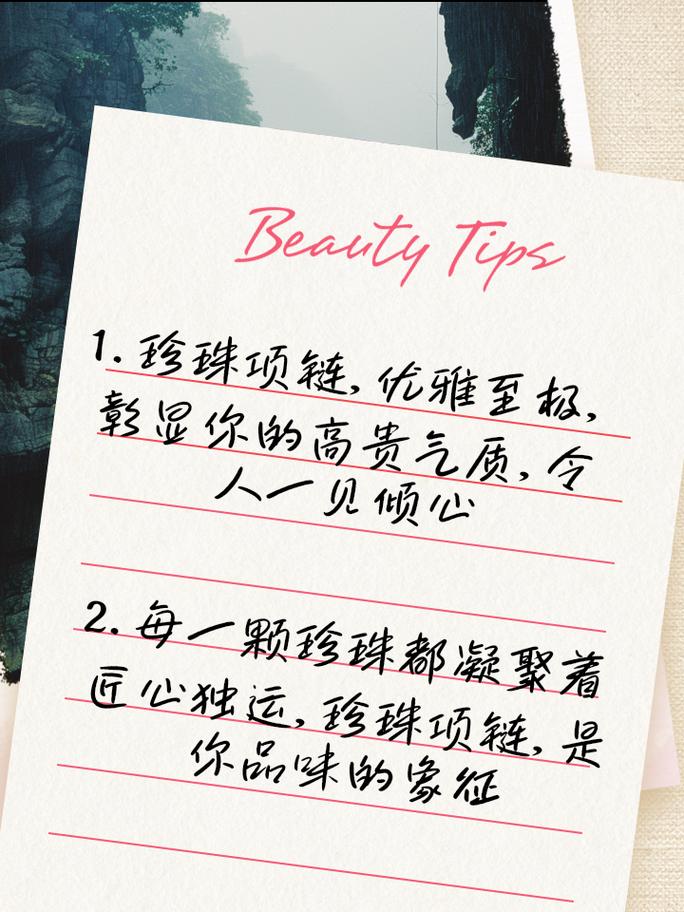 Beauty Tips
1. 珍珠项链, 优雅至极,
彰显你的高贵气质, 令
人一见倾心
2. 每一颗珍珠都凝聚着
匠心独运, 珍珠项链, 是
你品味的象征